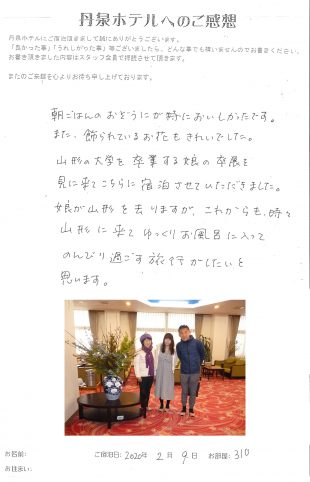 丹泉ホテルへのご感想
丹泉ホテルにご宿泊頂きまして誠にありがとうございます。
「良かった事」「うれしかった事」等ございましたら、どんな事でも構いませんのでお書きください。
お書き頂きました内容はスタッフ全員で拝読させて頂きます。
またのご来館を心よりお待ち申し上げております。
朝ごはんのおぞうにが特においしかったです。
また、飾られているお花もきれいでした。
山形の大学を卒業する娘の卒展を
見に来てこちらに宿泊させていただきました。
娘が山形を去りますが、これからも、時々
山形に来てゆっくりお風呂に入って
のんびり過ごす旅行がしたいと
思います。
お名前: ご宿泊日: 2020年 2月 9日 お部屋: 310
お住まい: